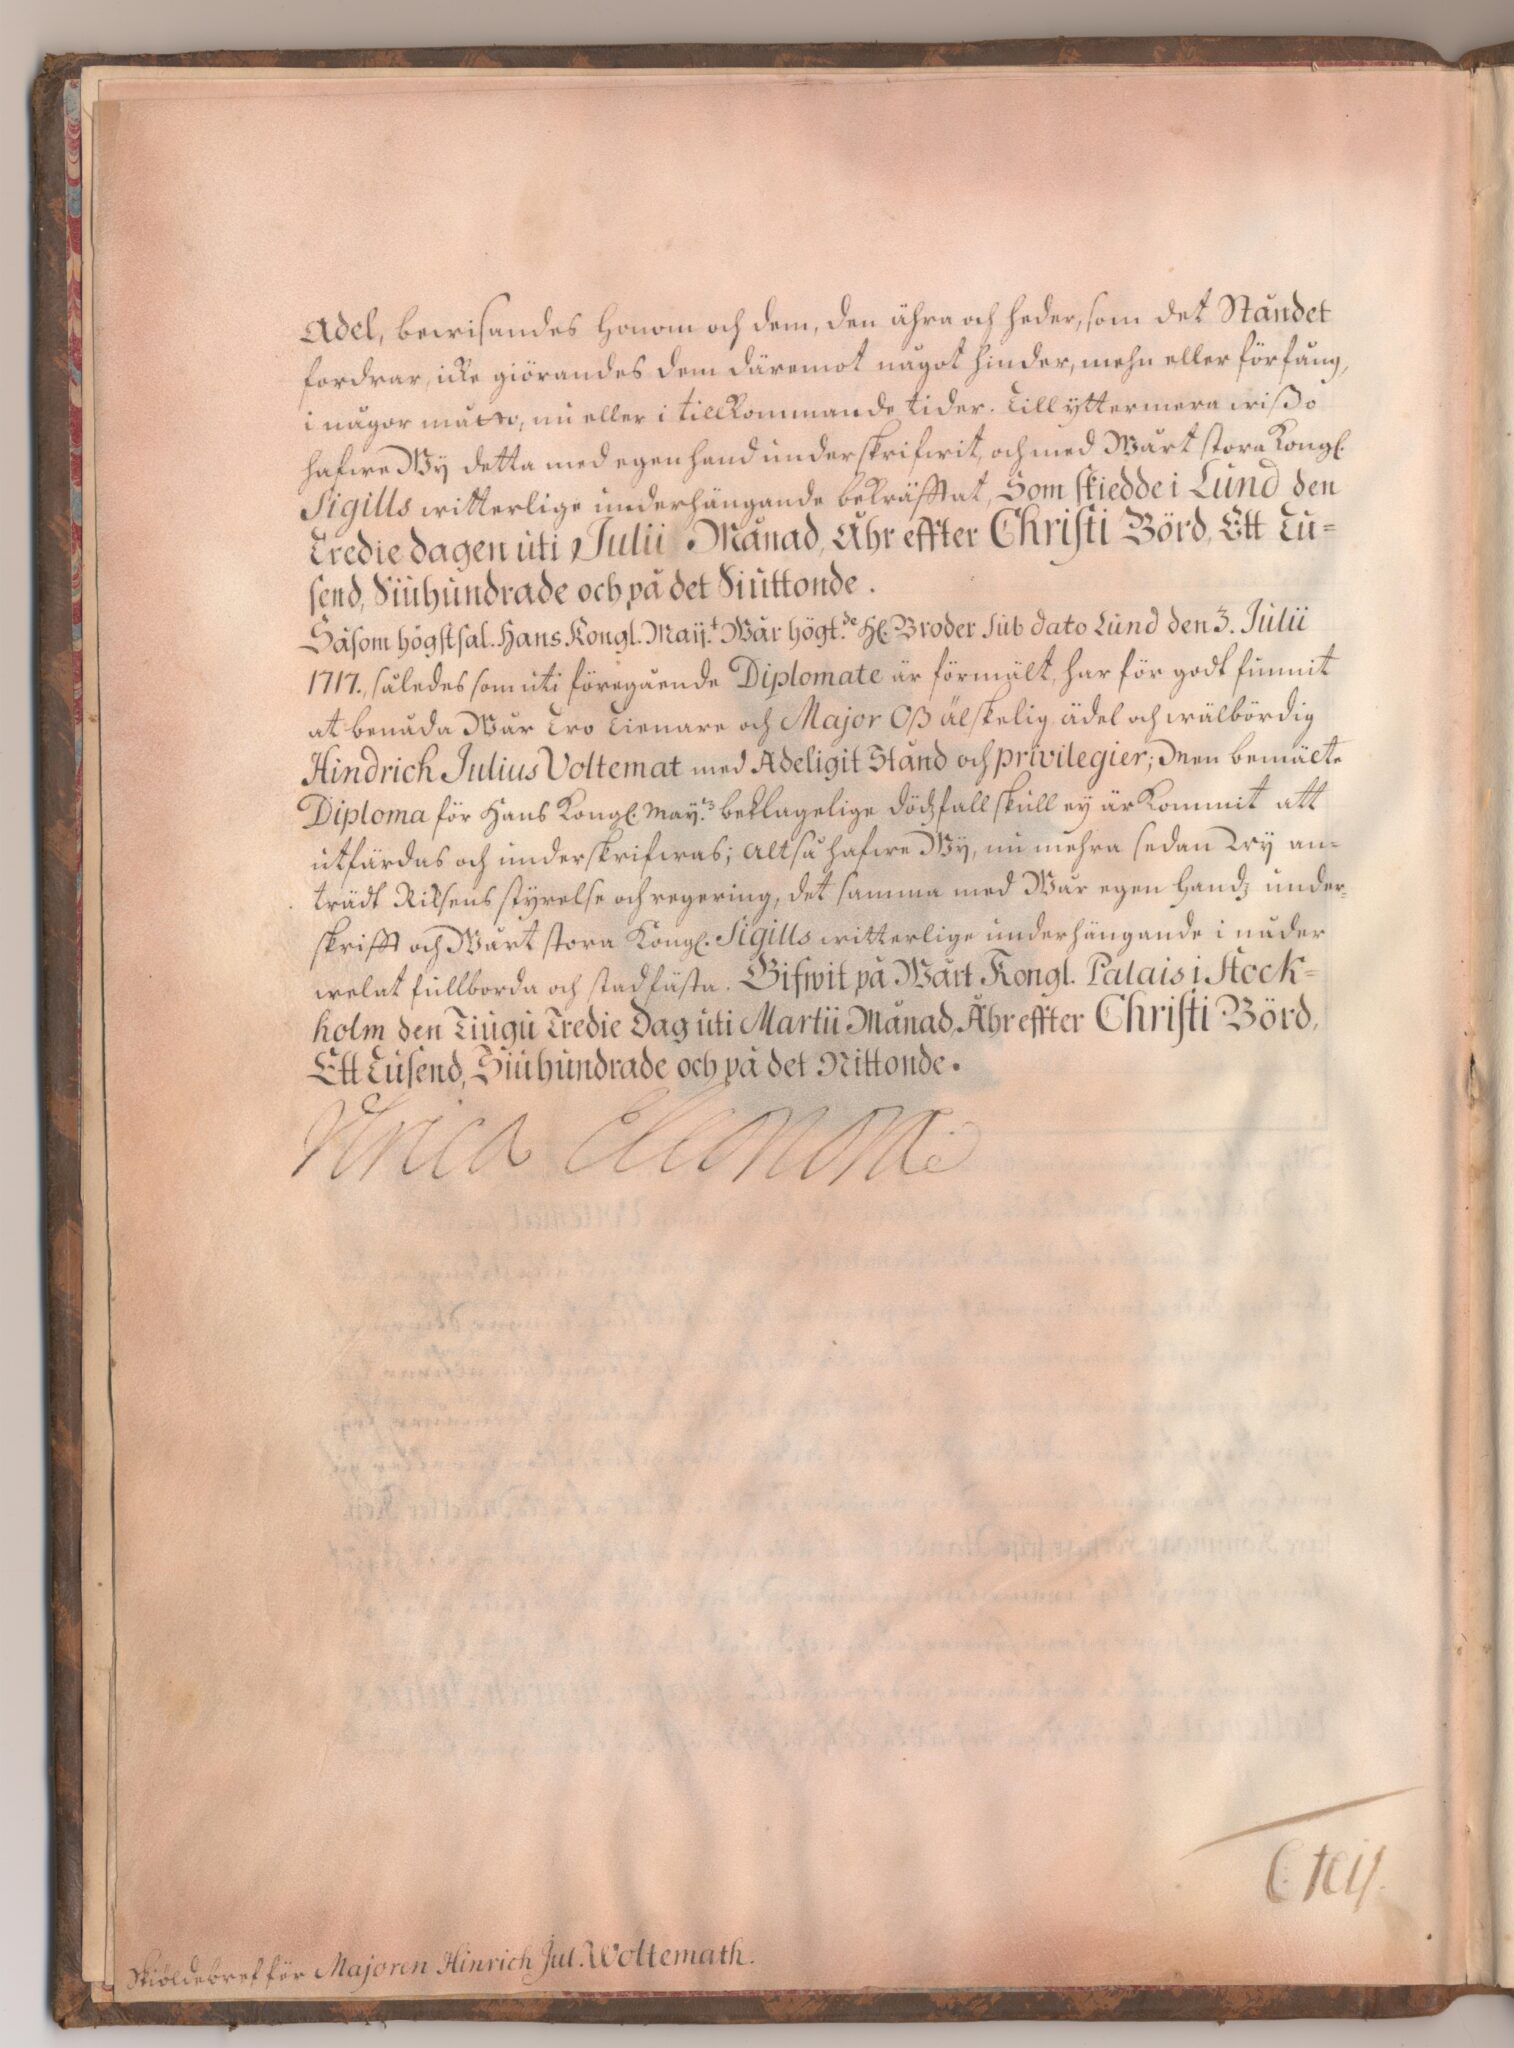 Adel, bewisandes Honom och dem, den ähra och heder, som det Ståndet
fordrar, icke giörandes dem däremot något hinder, mehn eller förfång,
i någor måtto, nu eller i tillkommande tider. Till yttermera wißo
hafwe Wy detta med egen hand underskrifwit, och med Wårt stora Kongl.
Sigills witterlige underhängande bekräfftat, Som skiedde i Lund den
Tredie dagen uti Julii Månad, Åhr effter Christi Börd, Ett Tu-
send, Siuhundrade och på det Siuttonde.
Såsom högstsal. Hans Kongl. Maij:t Wår högt:de H. Broder sub dato Lund den 3. Julii
1717., således som uti föregående Diplomate är förmält, har för godt funnit
at benåda Wår Tro Tienare och Major Oß älskelig ädel och wälbördig
Hindrich Julius Voltemat med Adeligit Stånd och privilegier; Men bemälte
Diploma för Hans Kongl. May:tz beklagelige dödzfall skull ey är kommit att
utfärdas och underskrifwas; Altså hafwe Wy, nu mehra sedan Wy an-
trädt Riksens styrelse och regering, det samma med Wår egen Handz under-
skrifft och Wårt stora Kongl. Sigills witterlige underhängande i nåder
welat fullborda och stadfästa. Gifwit på Wårt Kongl. Palais i Stock-
holm den Tiugu Tredie Dag uti Martii Månad, Åhr effter Christi Börd,
Ett Tusend, Siuhundrade och på det Nittonde.
Ulrica Eleonora
Skiöldebref för Majoren Hinrich Jul. Woltemath.